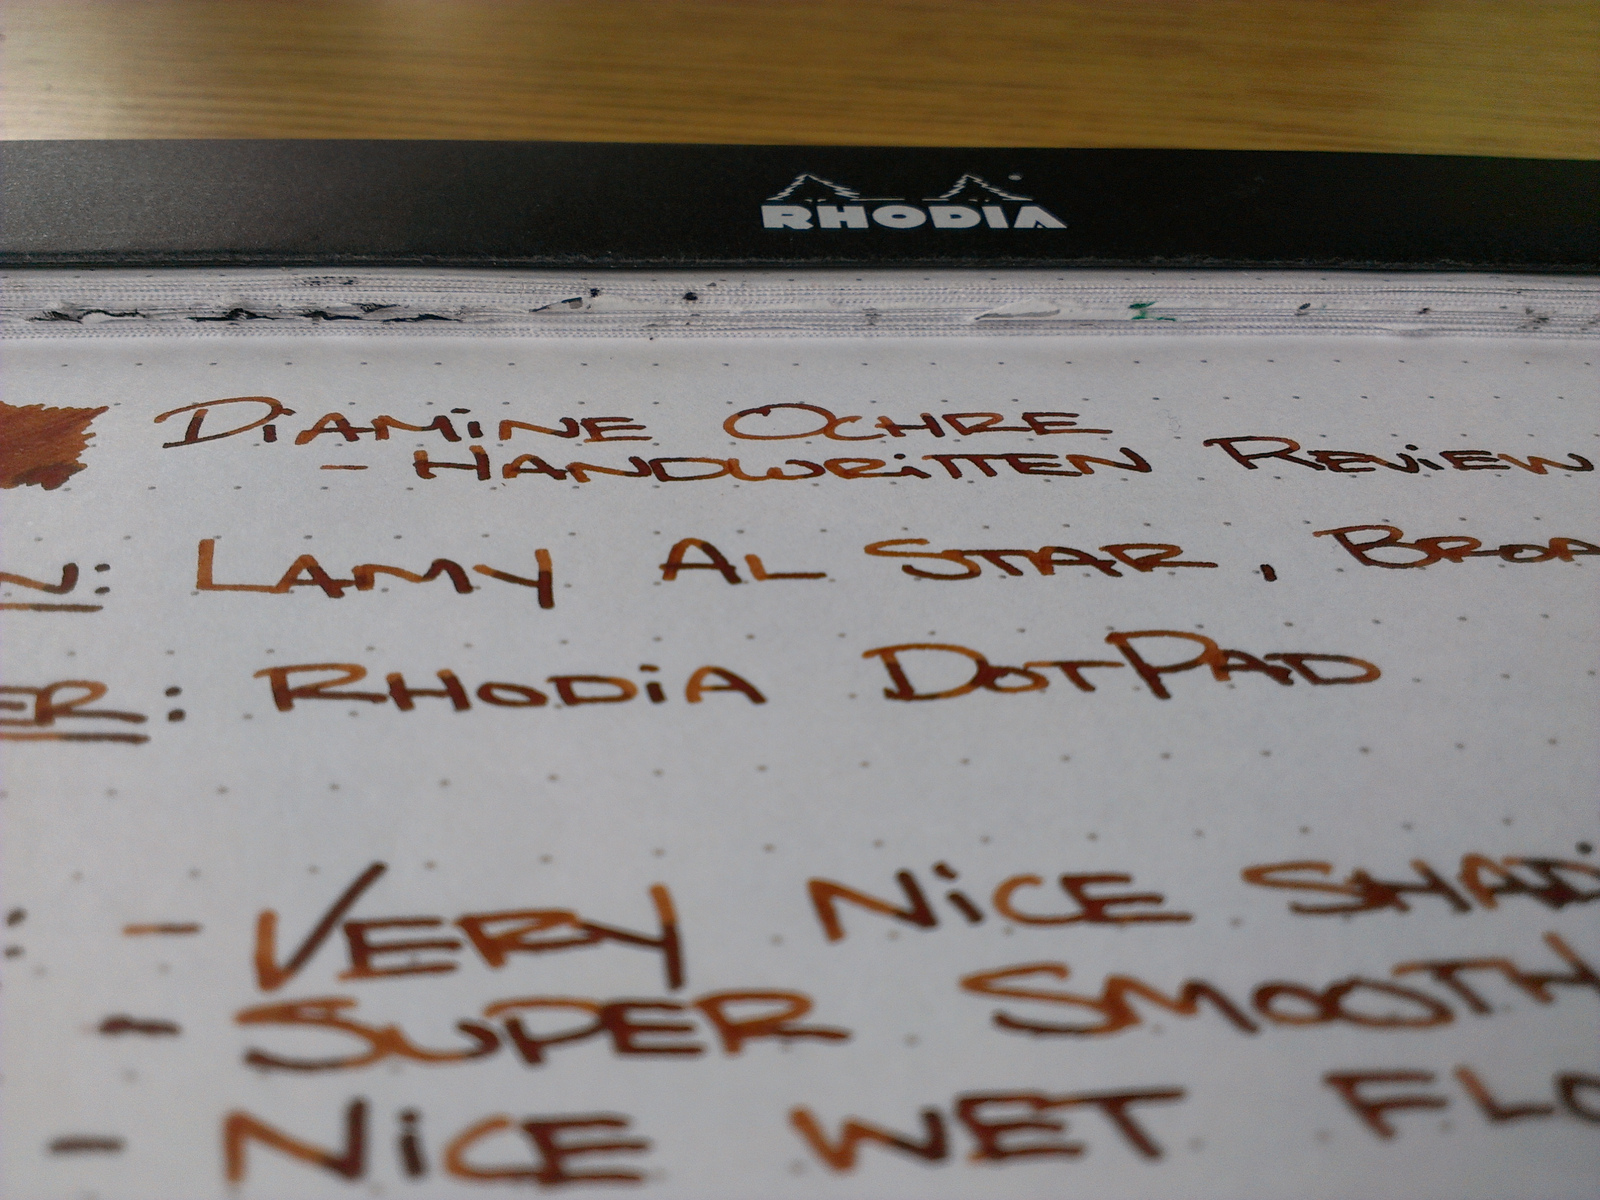 RHODIA
DiAMiNE OCHRE
- HANDWRiTTEN REViEW
N: LAMY AL STAR, BROA
ER: RHODiA DOTPAD
: - VERY NiCE SHAD
- SUPER SMOOTH
- NiCE WET FLO